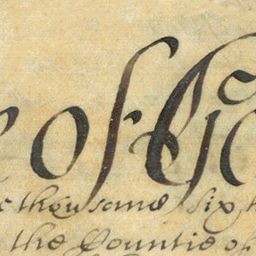 of G
thousand six
the Countie of